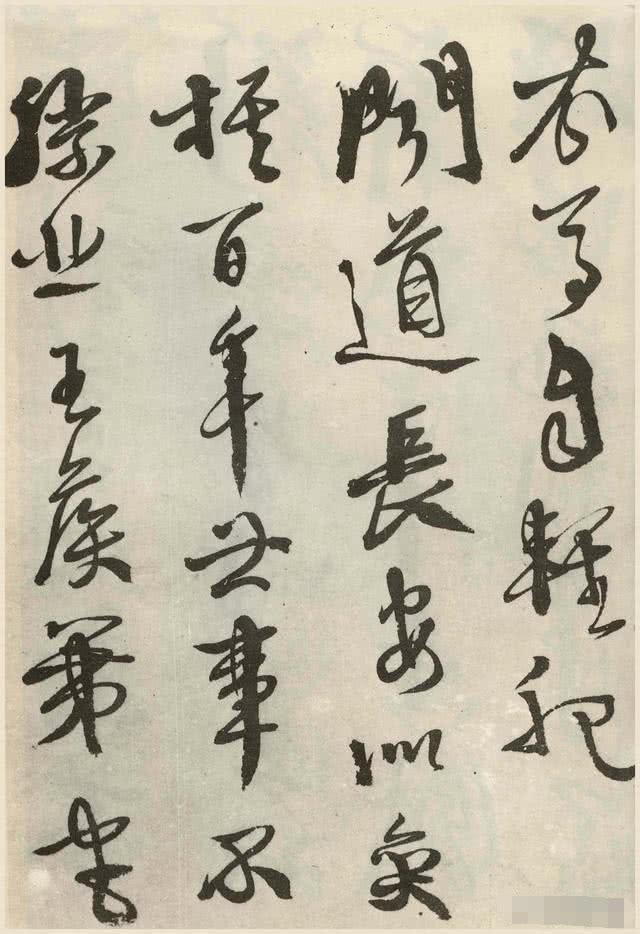 衣馬自輕肥
聞道長安似奕
棋百年世事不
勝悲王侯第宅